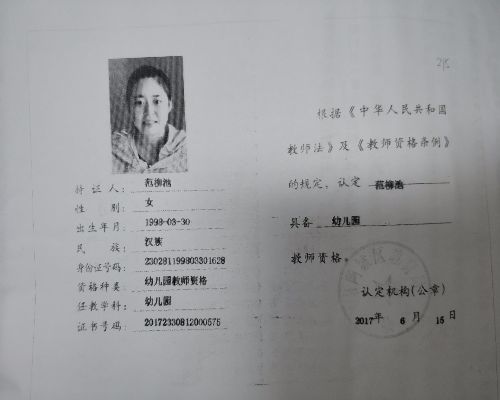 215
持证人： 范柳池
性别： 女
出生年月： 1998-03-30
民族： 汉族
身份证号码： 230281199803301628
资格种类： 幼儿园教师资格
任教学科： 幼儿园
证书号码： 20172330812000575
根据《中华人民共和国
教师法》及《教师资格条例》
的规定，认定 范柳池
具备 幼儿园
教师资格。
认定机构(公章)
2017年 6月 15日